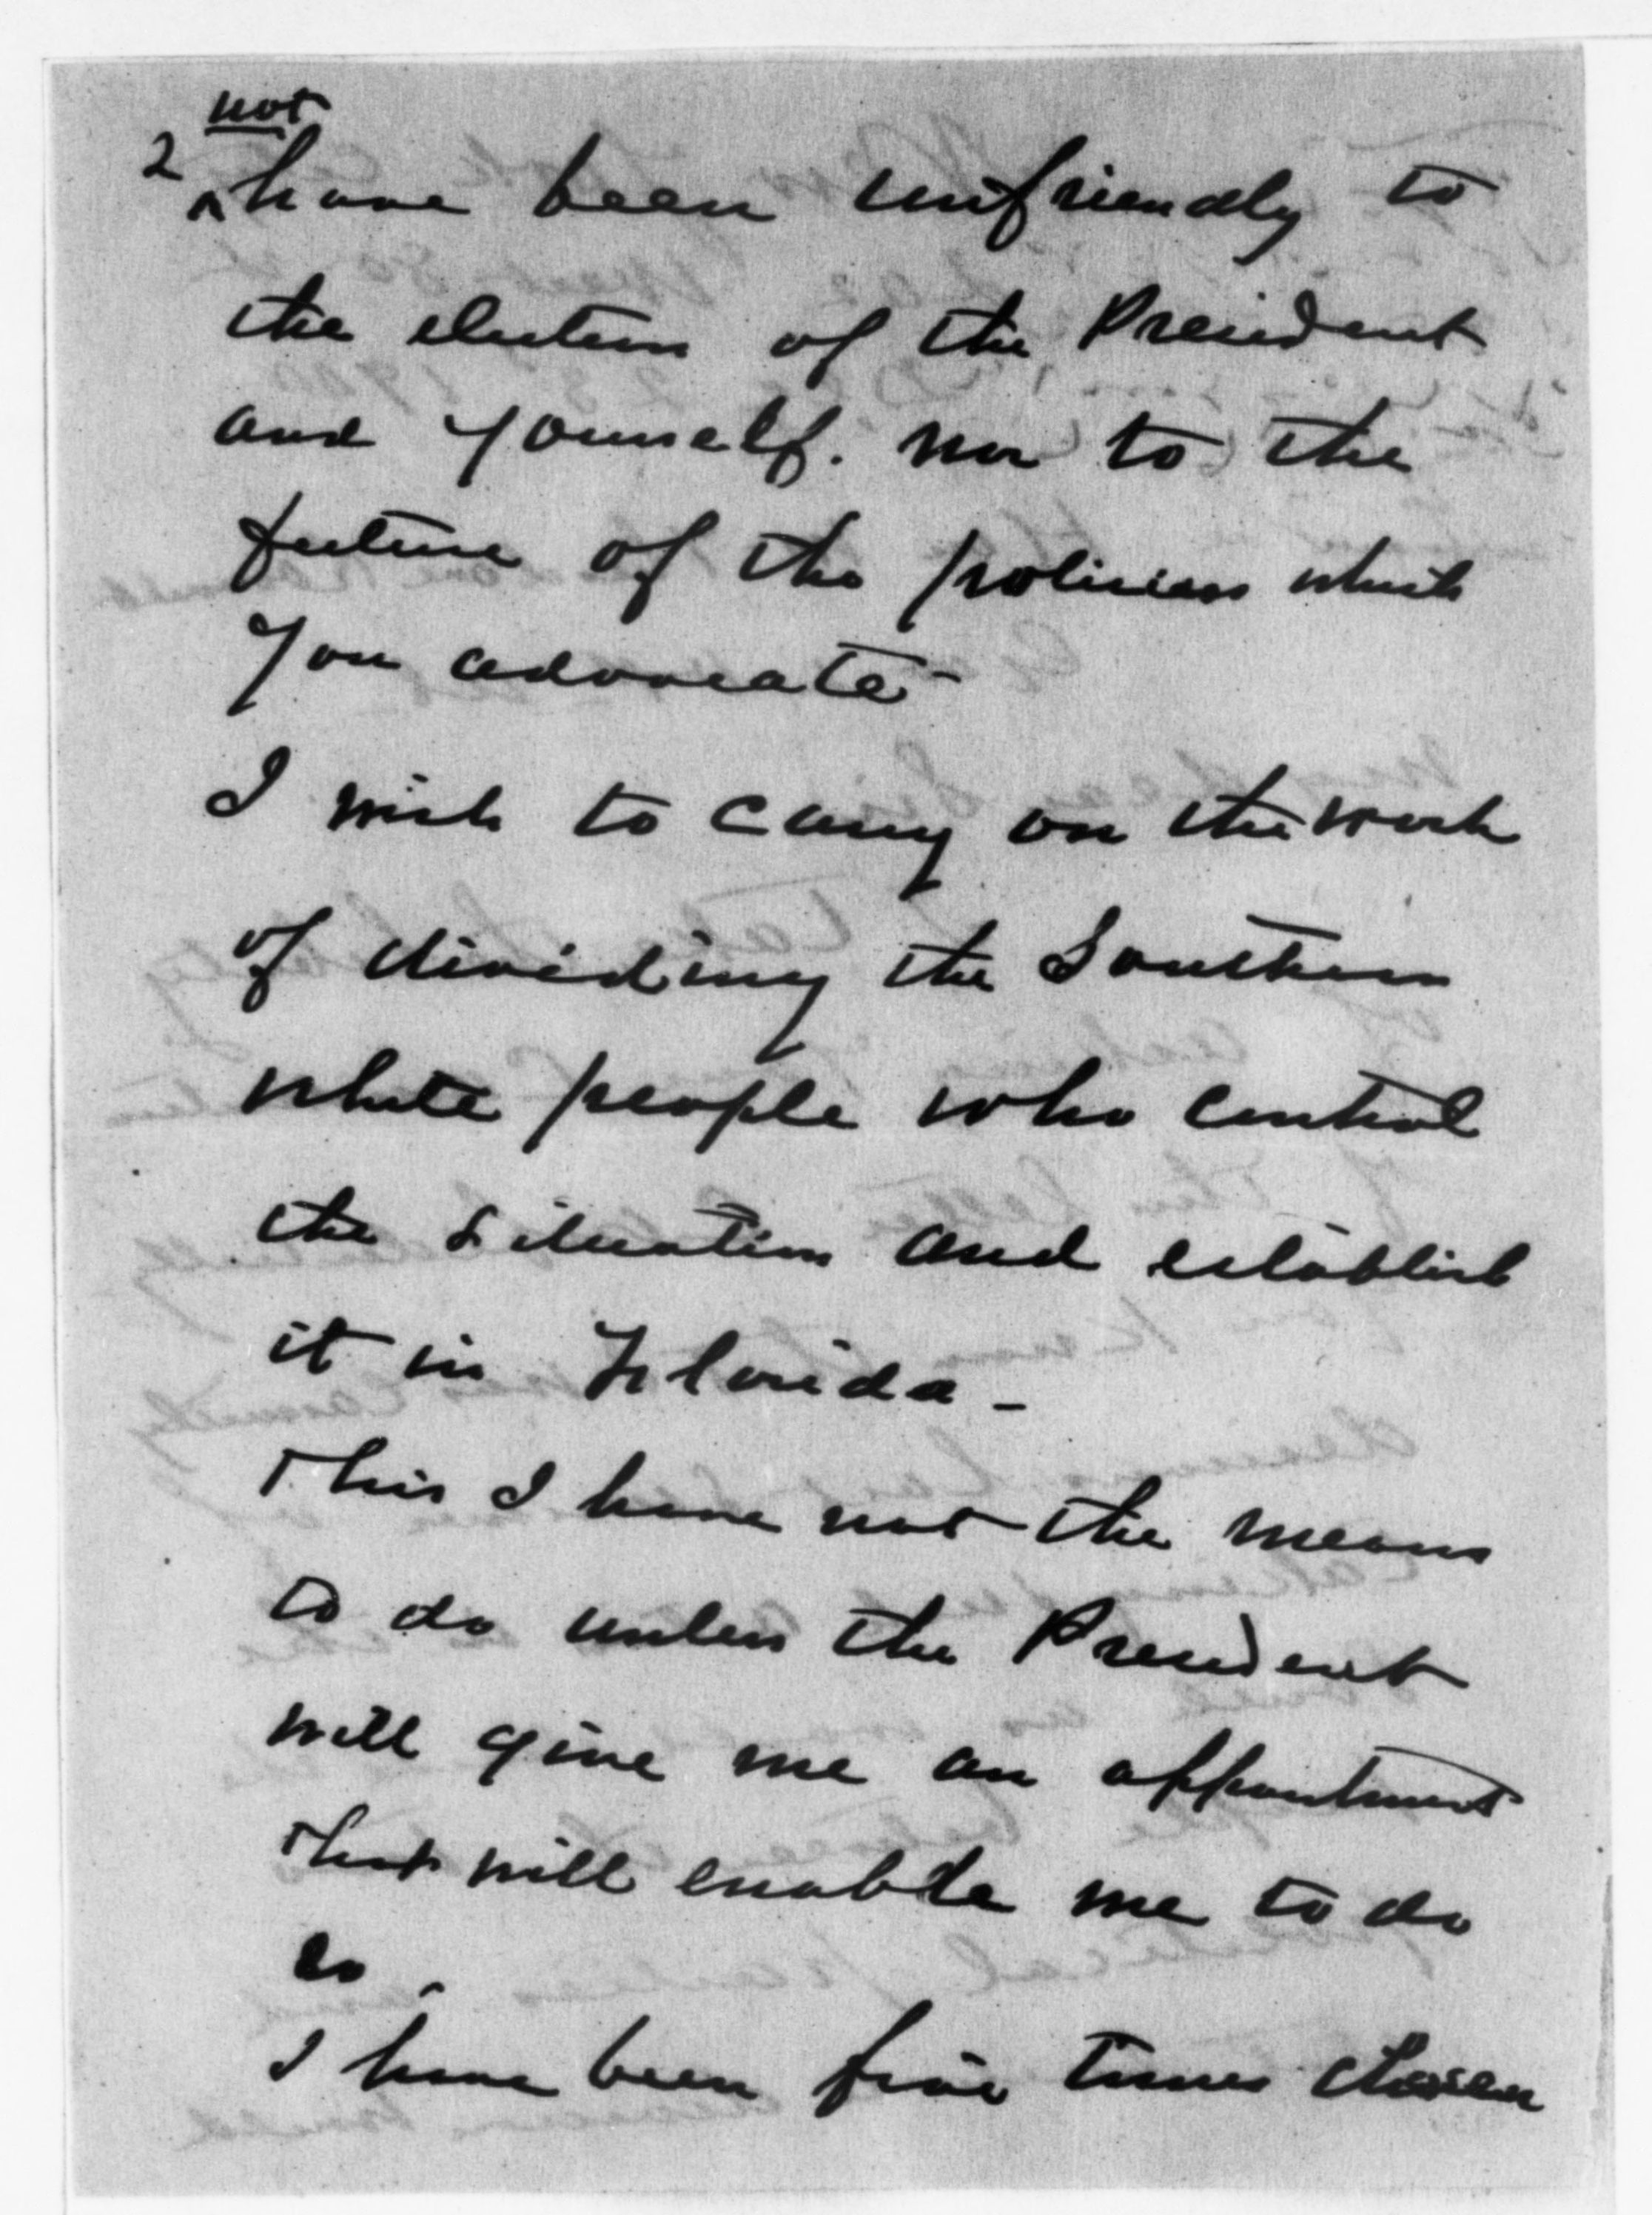 not
2 ^have been unfriendly to
the election of the President
and yourself. nor to the
future of the policies which
you advocate-
I wish to carry on the work
of dividing the Southern
white people who control
the situation and establish
it in Florida -
This I have not the means
to do unless the President
will give me an appointment
that will enable me to do
so.
I have been five times chosen